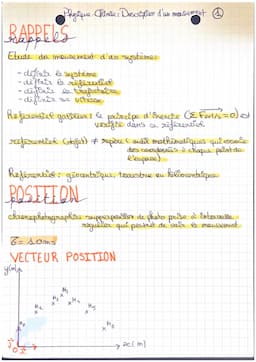 Physique-Chimie: Description d'un mouvement ①
RAPPELS
rappels
Etude du mouvement d'un système:
- définir le système
- définir le référentiel
- définir sa trajectoire
- définir sa vitesse
Référentiel galiléen: le principe d'inertie (ΣFext/s = 0) est
vérifié dans ce référentiel
référentiel (objet) ≠ repère (outil mathématiques qui associe
des coordonnées à chaque point de
l'espace)
Référentiel: géocentrique, terrestre ou héliocentrique
POSITION
position
chronophotographie: superposition de photo prise à intervalle
régulier qui permet de voir le mouvement
VECTEUR POSITION
y(m)
M₂
M₃
M₄
M₅
x(m)